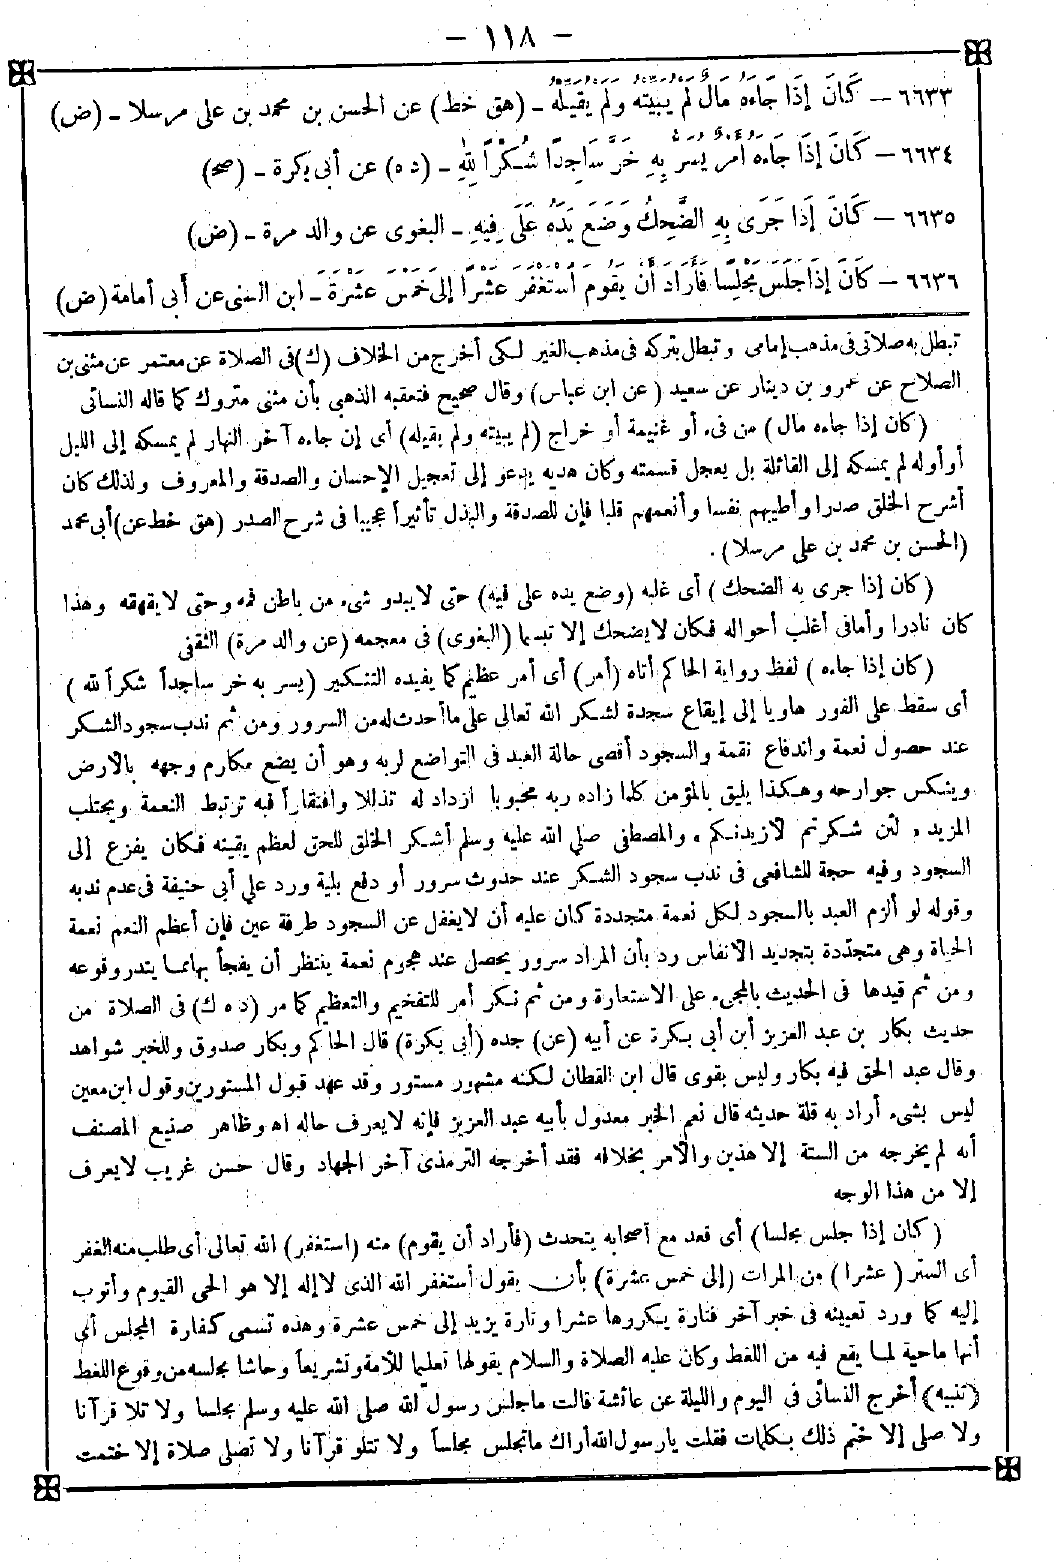 - ١١٨ -
٦٦٣٣ – كَانَ إِذَا جَاءَهُ مَالٌ لَمْ يُبَيِّتْهُ وَلَمْ يُقَيِّلْهُ - (هق خط) عن الحسن بن محمد بن على مرسلا - (ض)
٦٦٣٤ – كَانَ إِذَا جَاءَهُ أَمْرٌ يُسَرُّ بِهِ خَرَّ سَاجِدًا شُكْرًا لِلهِ - (د ه) عن أبى بكرة - (صح)
٦٦٣٥ – كَانَ إِذَا جَرَى بِهِ الضَّحِكُ وَضَعَ يَدَهُ عَلَى فِيهِ - البغوى عن والد مرة - (ض)
٦٦٣٦ – كَانَ إِذَا جَلَسَ مَجْلِسًا فَأَرَادَ أَنْ يَقُومَ اسْتَغْفَرَ عَشْرًا إِلَى خَمْسَ عَشْرَةَ - ابن السنى عن أبى أمامة (ض)
تبطل به صلاتى فى مذهب إمامى وتبطل بتركه فى مذهب الغير لكى أخرج من الخلاف (ك) فى الصلاة عن معتمر عن مثنى بن
الصلاح عن عمرو بن دينار عن سعيد (عن ابن عباس) وقال صحيح فتعقبه الذهبى بأن مثنى متروك كما قاله النسائى
(كان إذا جاءه مال) من فىء أو غنيمة أو خراج (لم يبيته ولم يقيله) أى إن جاءه آخر النهار لم يمسكه إلى الليل
أو أوله لم يمسكه إلى القائلة بل يعجل قسمته وكان هديه يدعو إلى تعجيل الإحسان والصدقة والمعروف ولذلك كان
أشرح الخلق صدرا وأطيبهم نفسا وأنعمهم قلبا فإن للصدقة والبذل تأثيراً عجيبا فى شرح الصدر (هق خط عن) أبى محمد
(الحسن بن محمد بن على مرسلا) .
(كان إذا جرى به الضحك) أى غلبه (وضع يده على فيه) حتى لا يبدو شىء من باطن فمه وحتى لا يقهقه وهذا
كان نادرا وأما فى أغلب أحواله فكان لا يضحك إلا تبسما (البغوى) فى معجمه (عن والد مرة) الثقفى
(كان إذا جاءه) لفظ رواية الحاكم أتاه (أمر) أى أمر عظيم كما يفيده التنكير (يسر به خر ساجداً شكراً لله)
أى سقط على الفور هاويا إلى إيقاع سجدة لشكر الله تعالى على ما أحدث له من السرور ومن ثم ندب سجود الشكر
عند حصول نعمة واندفاع نقمة والسجود أقصى حالة العبد فى التواضع لربه وهو أن يضع مكارم وجهه بالأرض
وينكس جوارحه وهكذا يليق بالمؤمن كلما زاده ربه محبوبا ازداد له تذللا وافتقاراً فبه ترتبط النعمة ويجتلب
المزيد « لئن شكرتم لأزيدنكم » والمصطفى صلى الله عليه وسلم أشكر الخلق للحق لعظم يقينه فكان يفزع إلى
السجود وفيه حجة للشافعى فى ندب سجود الشكر عند حدوث سرور أو دفع بلية ورد على أبى حنيفة فى عدم ندبه
وقوله لو ألزم العبد بالسجود لكل نعمة متجددة كان عليه أن لا يغفل عن السجود طرفة عين فإن أعظم النعم نعمة
الحياة وهى متجدّدة بتجديد الأنفاس رد بأن المراد سرور يحصل عند هجوم نعمة ينتظر أن يفجأ بها مما يندر وقوعه
ومن ثم قيدها فى الحديث بالمجىء على الاستعارة ومن ثم نكر أمر للتفخيم والتعظيم كما مر (د ه ك) فى الصلاة من
حديث بكار بن عبد العزيز أبن أبى بكرة عن أبيه (عن) جده (أبى بكرة) قال الحاكم وبكار صدوق وللخبر شواهد
وقال عبد الحق فيه بكار وليس بقوى قال ابن القطان لكنه مشهور مستور وقد عهد قبول المستورين وقول ابن معين
ليس بشىء أراد به قلة حديثه قال نعم الخبر معدول بأبيه عبد العزيز فإنه لا يعرف حاله اه وظاهر صنيع المصنف
أنه لم يخرجه من الستة إلا هذين والأمر بخلافه فقد أخرجه الترمذى آخر الجهاد وقال حسن غريب لا يعرف
إلا من هذا الوجه
(كان إذا جلس مجلسا) أى قعد مع أصحابه يتحدث (فأراد أن يقوم) منه (استغفر) الله تعالى أى طلب منه الغفر
أى الستر (عشرا) من المرات (إلى خمس عشرة) بأن يقول أستغفر الله الذى لا إله إلا هو الحى القيوم وأتوب
إليه كما ورد تعيينه فى خبر آخر فتارة يكررها عشرا وتارة يزيد إلى خمس عشرة وهذه تسمى كفارة المجلس أى
أنها ماحية لما يقع فيه من اللغط وكان عليه الصلاة والسلام يقولها تعليما للأمة وتشريعاً وحاشا مجلسه من وقوع اللغط
(تنبيه) أخرج النسائى فى اليوم والليلة عن عائشة قالت ما جلس رسول الله صلى الله عليه وسلم مجلسا ولا تلا قرآنا
ولا صلى إلا ختم ذلك بكلمات فقلت يا رسول الله أراك ما تجلس مجلساً ولا تتلو قرآنا ولا تصلى صلاة إلا ختمت